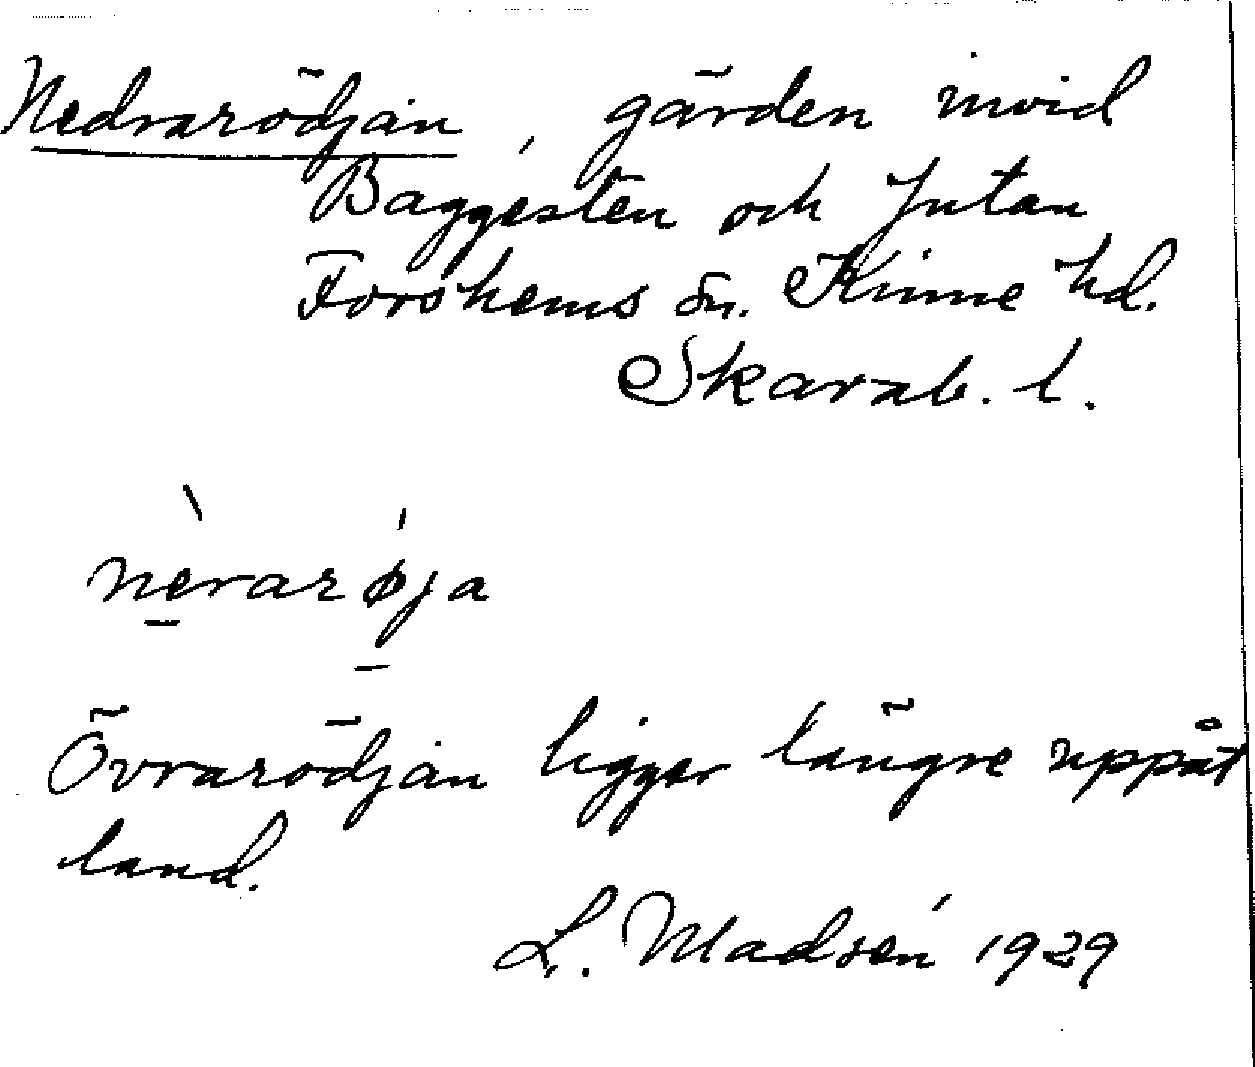 Nedrarödjan, gärden invid
Baggesten och Jutan
Forshems sn. Kinne hd.
Skarab. l.
nèrarǿja
Övrarödjan ligger längre uppåt
land.
L. Madsén 1929